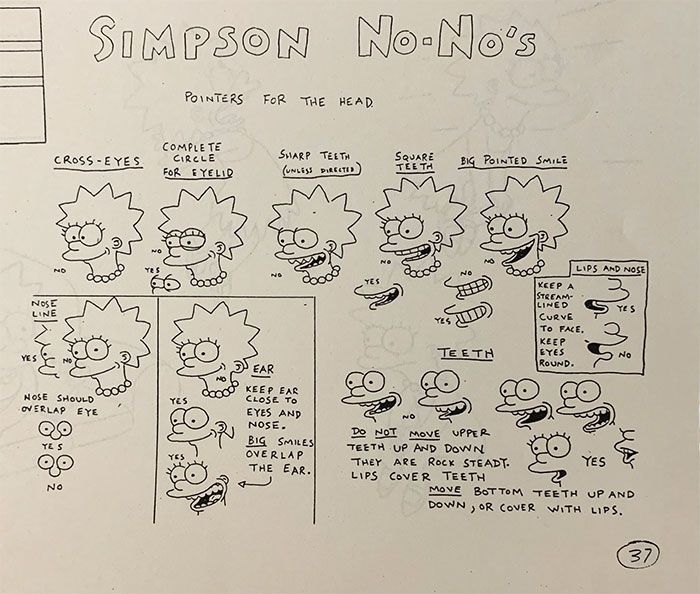 SIMPSON NO-NO'S
POINTERS FOR THE HEAD.
CROSS-EYES
NO
COMPLETE
CIRCLE
FOR EYELID
NO
YES
SHARP TEETH
(UNLESS DIRECTED)
NO
SQUARE
TEETH
NO
YES
BIG POINTED SMILE
NO
NO
YES
LIPS AND NOSE
KEEP A
STREAM-
LINED
CURVE
TO FACE.
KEEP
EYES
ROUND.
YES
NO
NOSE
LINE
YES
NO
NOSE SHOULD
OVERLAP EYE
YES
NO
NO
EAR
KEEP EAR
CLOSE TO
EYES AND
NOSE.
BIG SMILES
OVERLAP
THE EAR.
YES
YES
TEETH
NO
DO NOT MOVE UPPER
TEETH UP AND DOWN
THEY ARE ROCK STEADY.
LIPS COVER TEETH
YES
MOVE BOTTOM TEETH UP AND
DOWN, OR COVER WITH LIPS.
37